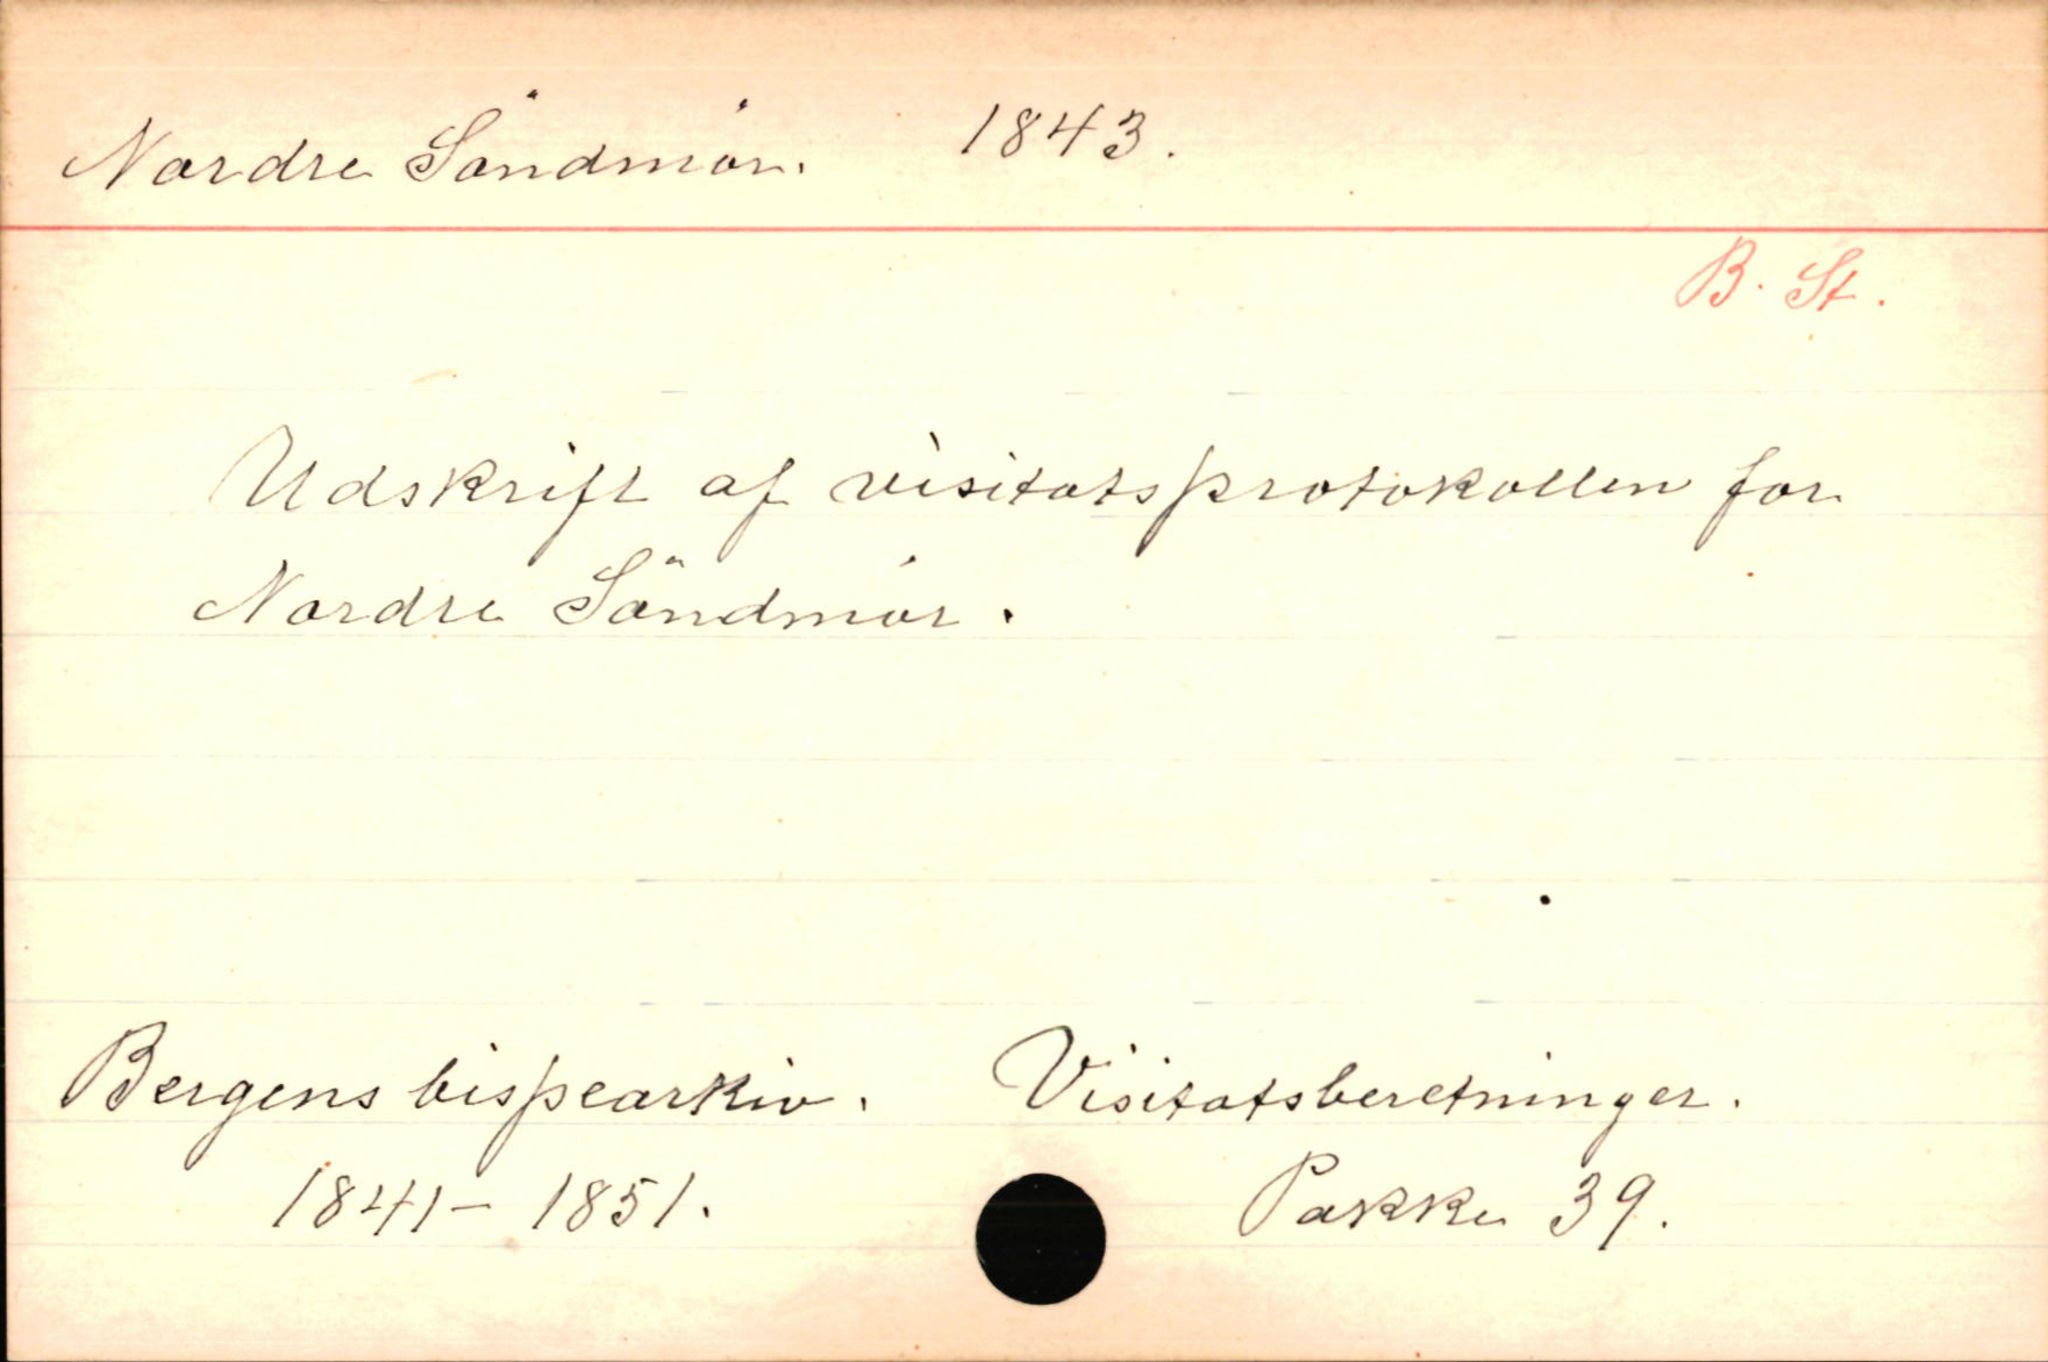 Nordre Söndmör. 1843.
B. St.
Udskrift af visitatsprotokollen for
Nordre Söndmör.
Bergens bispearkiv. Visitatsberetninger.
1841-1851. Pakke 39.